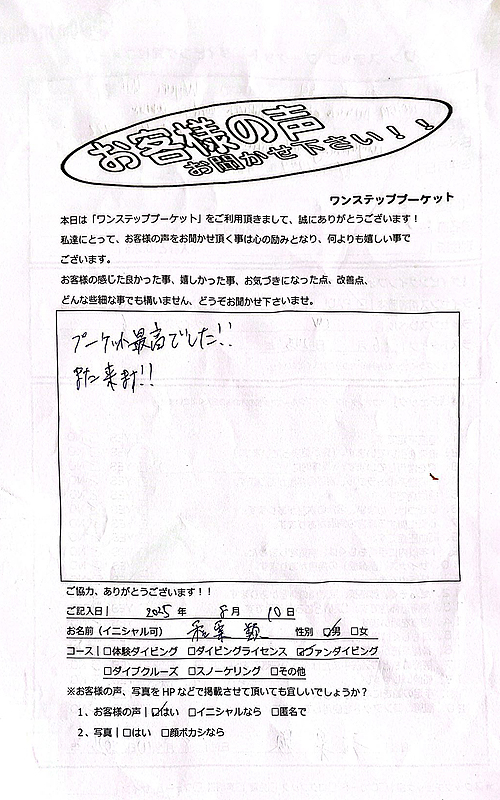 お客様の声
お聞かせ下さい！！
ワンステッププーケット
本日は「ワンステッププーケット」をご利用頂きまして、誠にありがとうございます！
私達にとって、お客様の声をお聞かせ頂く事は心の励みとなり、何よりも嬉しい事で
ございます。
お客様の感じた良かった事、嬉しかった事、お気づきになった点、改善点、
どんな些細な事でも構いません、どうぞお聞かせ下さいませ。
プーケット最高でした!!
また来ます!!
ご協力、ありがとうございます！！
ご記入日| 2025 年 8 月 10 日
お名前（イニシャル可） 性別 ☑男 □女
コース| □体験ダイビング □ダイビングライセンス ☑ファンダイビング
□ダイブクルーズ □スノーケリング □その他
※お客様の声、写真をHPなどで掲載させて頂いても宜しいでしょうか？
1、お客様の声|☑はい □イニシャルなら □匿名で
2、写真|□はい □顔ボカシなら